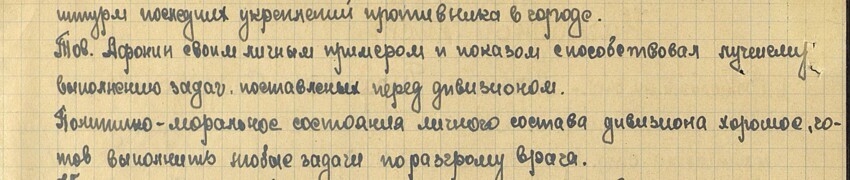 штурм последних укреплений противника в городе.
Тов. Афонин своим личным примером и показом способствовал лучшему
выполнению задач. поставленых перед дивизионом.
Политико-моральное состояния личного состава дивизиона хорошое, го-
тов выполнить любые задачи по разгрому врага.